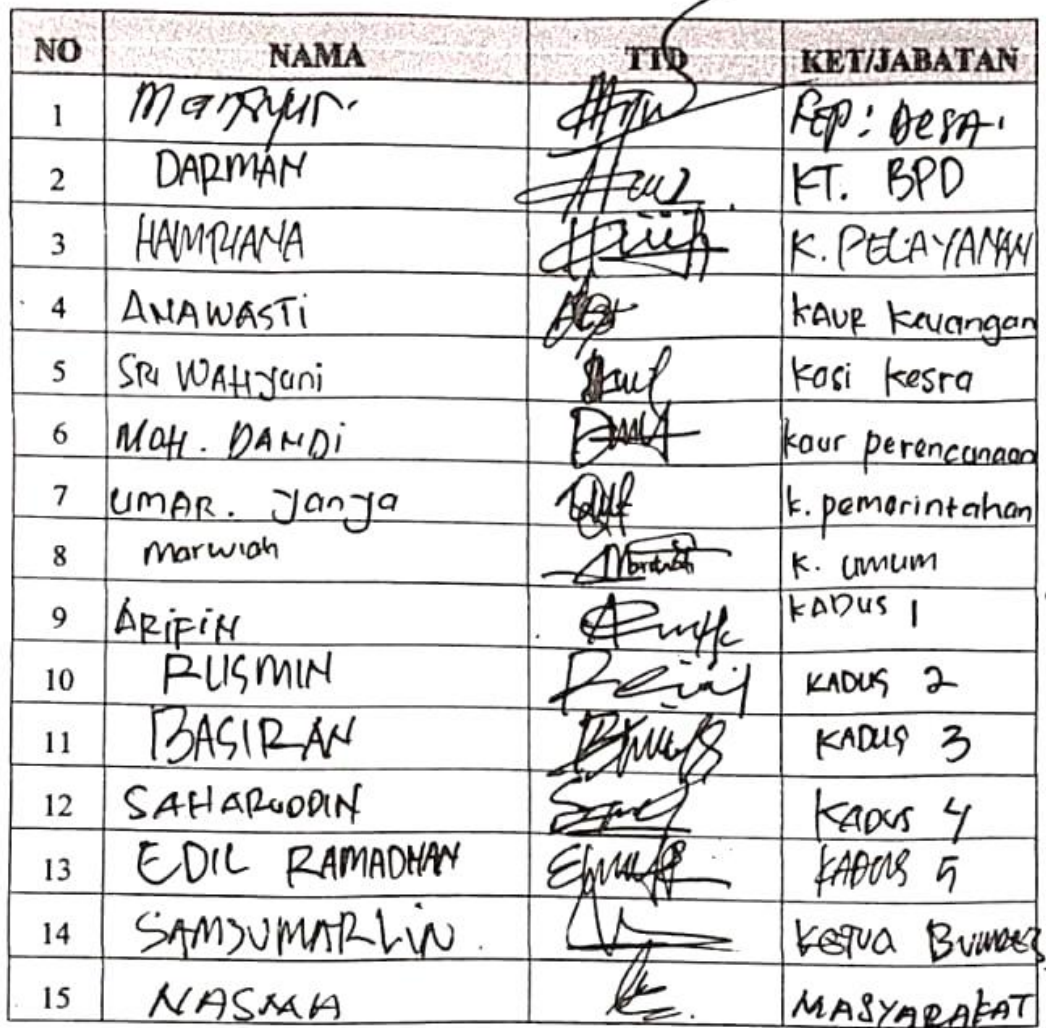 NO NAMA TTD KET/JABATAN
1 Mansyur. Kep: Desa.
2 DARMAN KT. BPD
3 HAMRIANA K. PELAYANAN
4 ANAWASTi KAUR Keuangan
5 SRi WAHyuni Kasi Kesra
6 MOH. DANDi Kaur perencanaan
7 UMAR. Yanya K. pemerintahan
8 Marwiah K. umum
9 ARiFiN KADUS 1
10 RUSMIN KADUS 2
11 BASIRAN KADUS 3
12 SAHARUDDIN KADUS 4
13 EDIL RAMADHAN KADUS 5
14 SAMSUMARLIN. KETUA Bumdes
15 NASMA MASYARAKAT